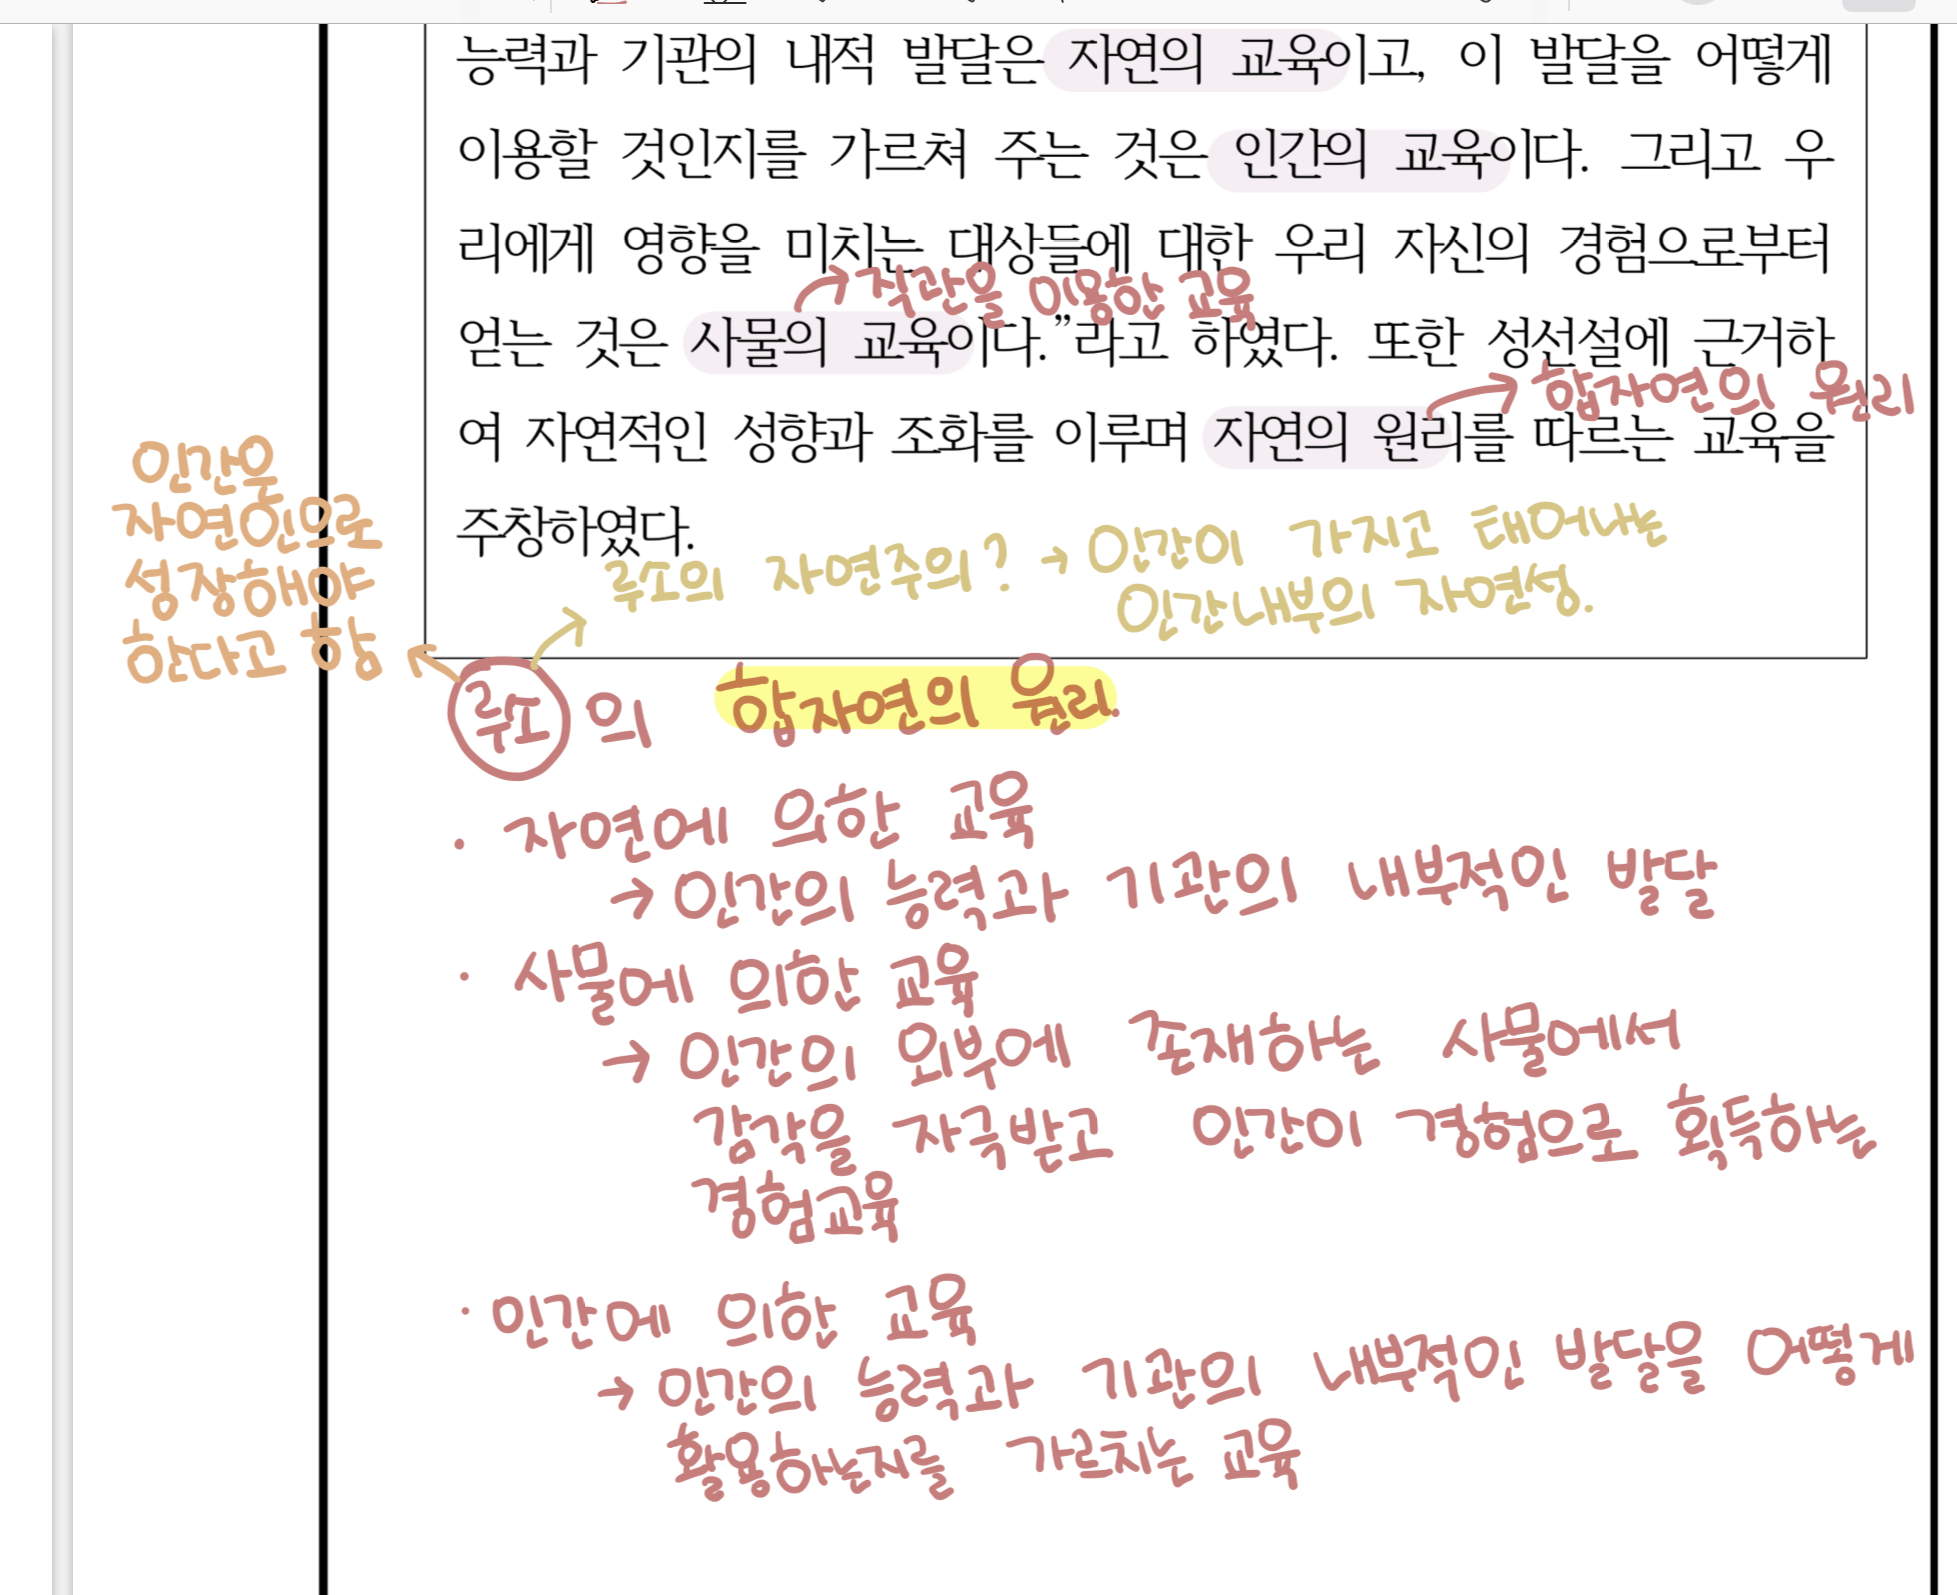 능력과 기관의 내적 발달은 자연의 교육이고, 이 발달을 어떻게
이용할 것인지를 가르쳐 주는 것은 인간의 교육이다. 그리고 우
리에게 영향을 미치는 대상들에 대한 우리 자신의 경험으로부터
→직관을 이용한 교육
얻는 것은 사물의 교육이다.”라고 하였다. 또한 성선설에 근거하
→합자연의 원리
여 자연적인 성향과 조화를 이루며 자연의 원리를 따르는 교육을
주창하였다.
인간은
자연인으로
성장해야
한다고 함
루소의 자연주의? → 인간이 가지고 태어나는
인간내부의 자연성.
루소의 합자연의 원리.
· 자연에 의한 교육
→ 인간의 능력과 기관의 내부적인 발달
· 사물에 의한 교육
→ 인간의 외부에 존재하는 사물에서
감각을 자극받고 인간이 경험으로 획득하는
경험교육
· 인간에 의한 교육
→ 인간의 능력과 기관의 내부적인 발달을 어떻게
활용하는지를 가르치는 교육